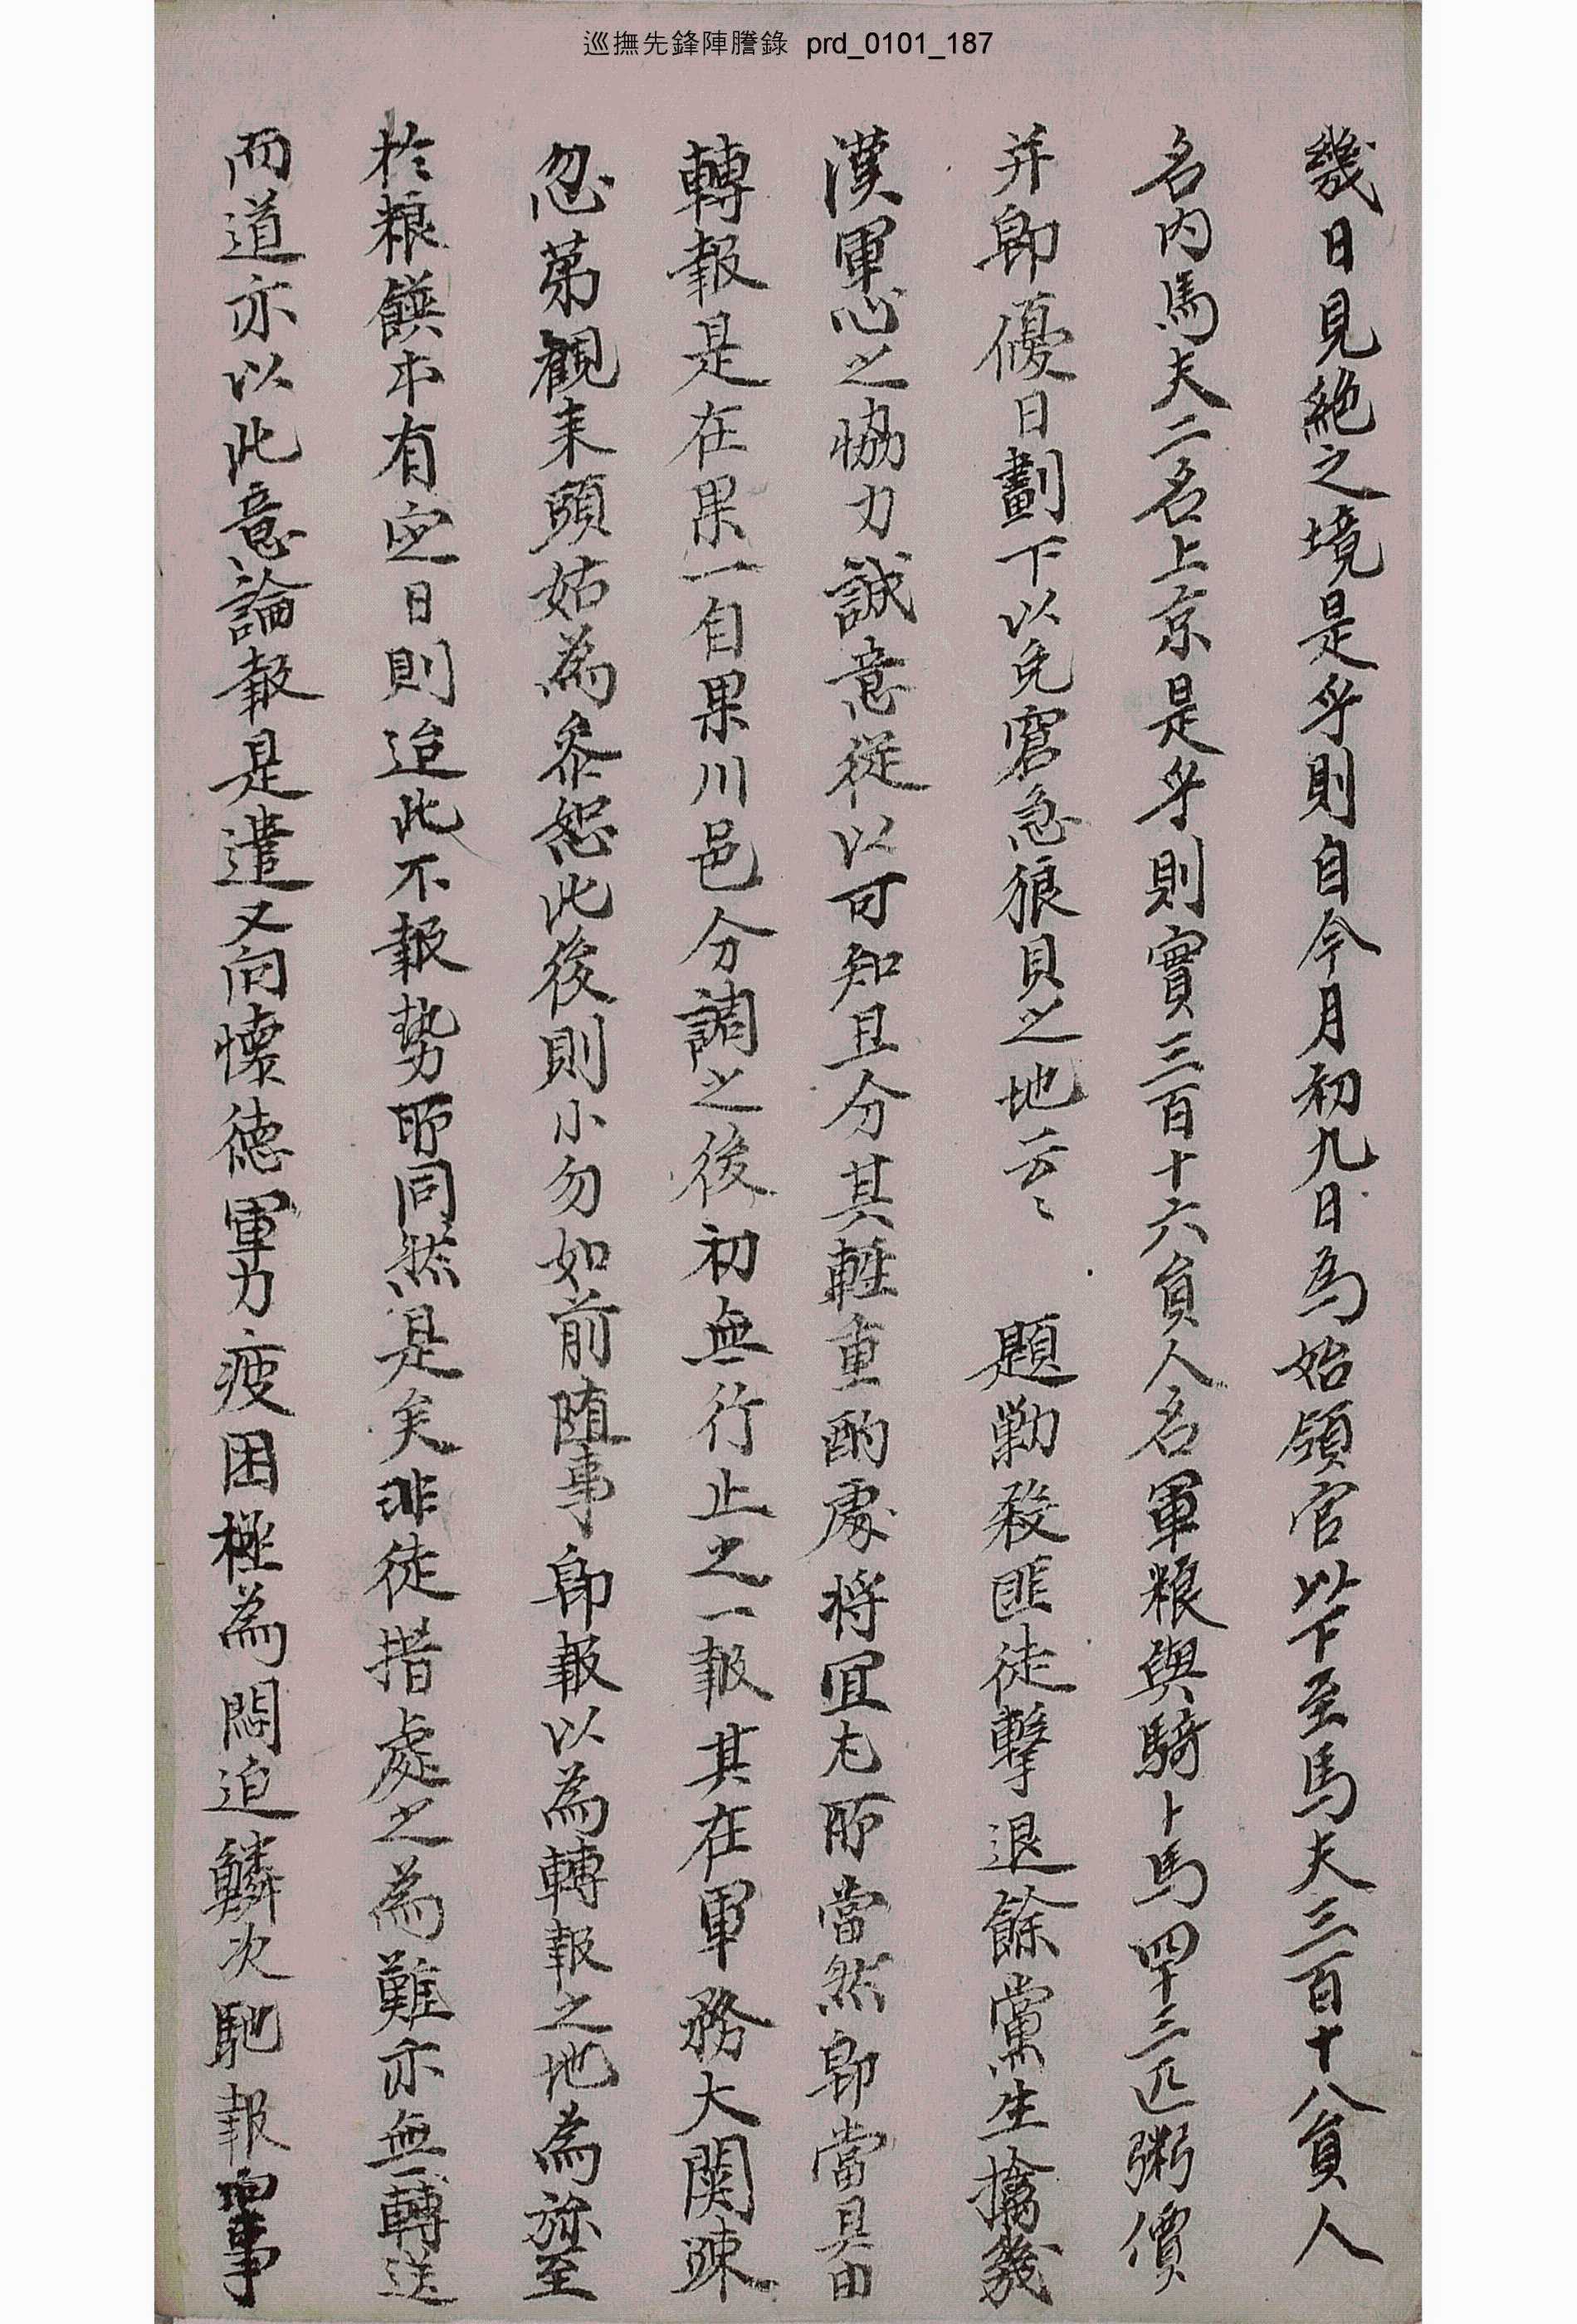 巡撫先鋒陣謄錄 prd_0101_187
幾日見絶之境是乎則自今月初九日爲始領官以下至馬夫三百十八員人
名內馬夫二名上京是乎則實三百十六員人名軍粮與騎卜馬四十三匹粥價
并卽優日劃下以免窘急狼貝之地云〻 題勦殺匪徒擊退餘黨生擒幾
漢軍心之協力誠意從以可知且分其輕重酌處將宜尤所當然卽當具由
轉報是在果一自果川邑分調之後初無行止之一報其在軍務大関踈
忽第觀來頭姑爲參恕此後則小勿如前随事卽報以爲轉報之地爲旀至
於粮饌本有定日則迨此不報勢所同然是矣非徒措處之爲難亦無轉送
而道亦以此意論報是遣又向懷德軍力疲困極爲悶迫鱗次馳報向事